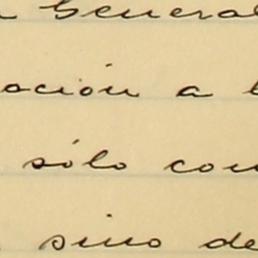 so General
ación a l
sólo com
sino de